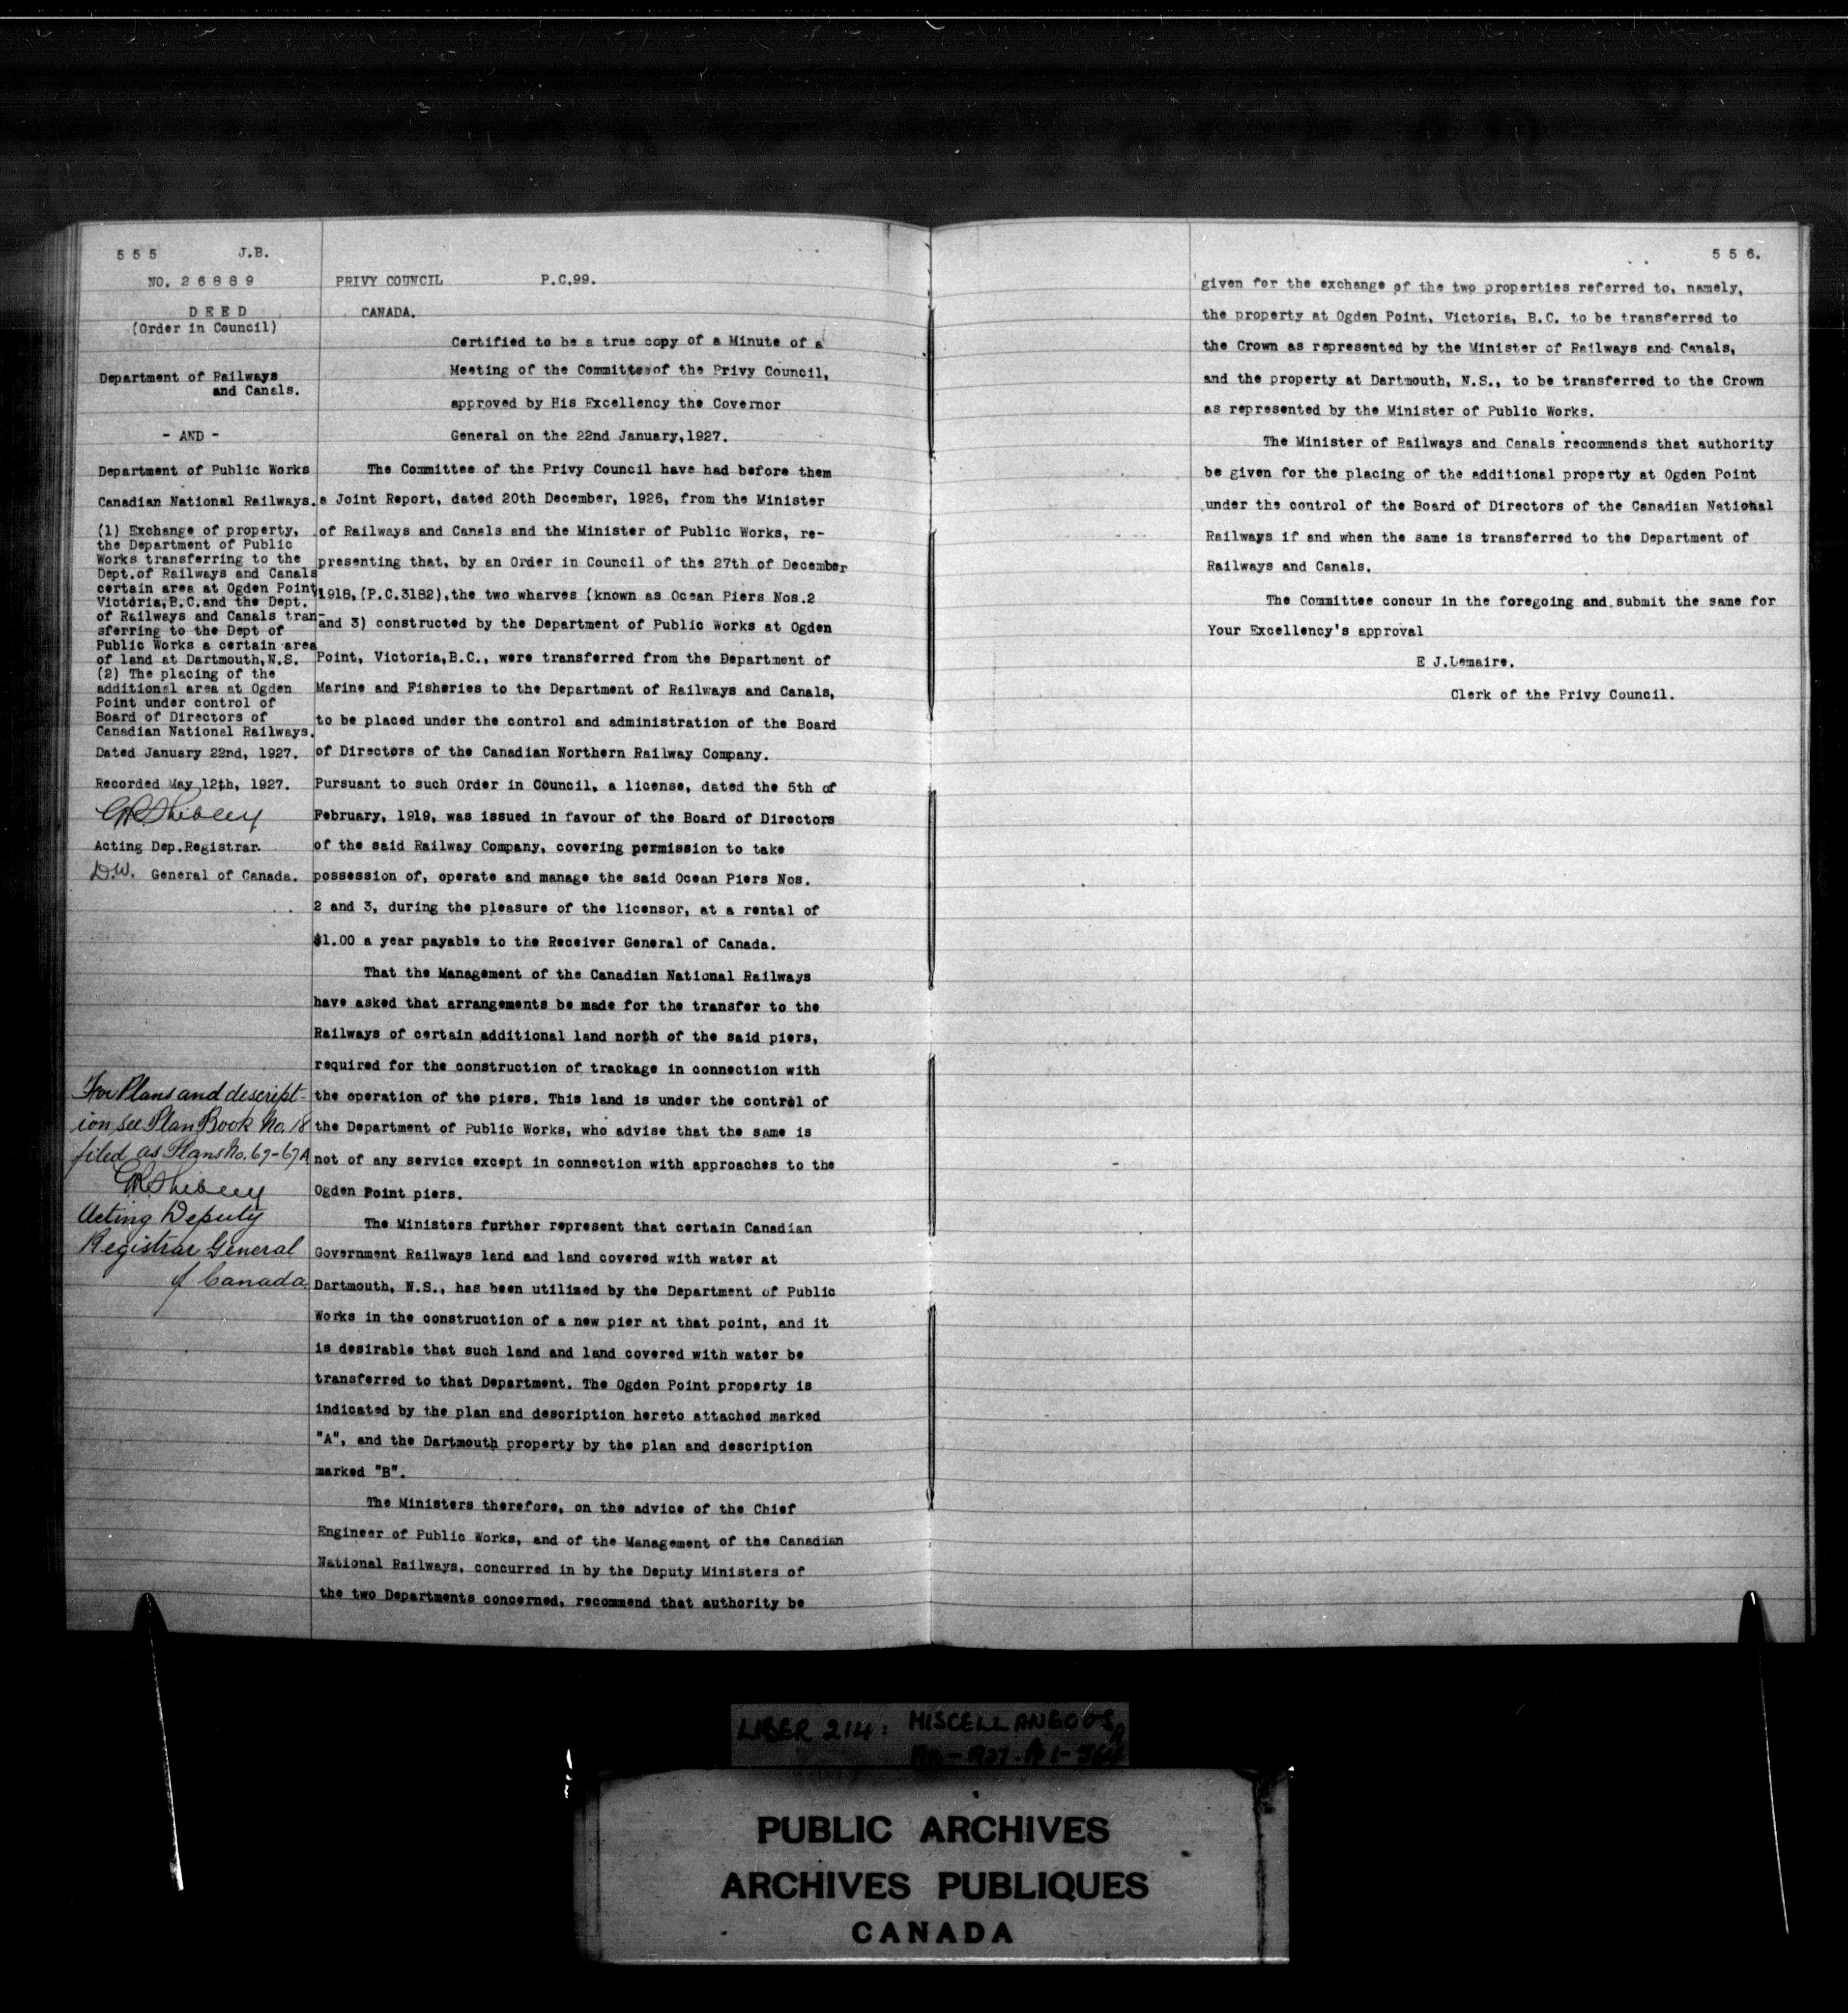 5 5 5 J.B.
NO. 2 6 8 8 9
D E E D
(Order in Council)
Department of Railways
and Canals.
- AND -
Department of Public Works
Canadian National Railways.
(1) Exchange of property,
the Department of Public
Works transferring to the
Dept.of Railways and Canals
certain area at Ogden Point,
Victoria,B.C.and the Dept.
of Railways and Canals tran-
sferring to the Dept of
Public Works a certain area
of land at Dartmouth,N.S.
(2) The placing of the
additional area at Ogden
Point under control of
Board of Directors of
Canadian National Railways.
Dated January 22nd, 1927.
Recorded May 12th, 1927.
GRShibley
Acting Dep.Registrar.
D.W. General of Canada.
For Plans and descript-
ion see Plan Book No. 18
filed as Plans No. 67-67A
GRShibley
Acting Deputy
Registrar General
of Canada
PRIVY COUNCIL P.C.99.
CANADA.
Certified to be a true copy of a Minute of a
Meeting of the Committee of the Privy Council,
approved by His Excellency the Governor
General on the 22nd January,1927.
The Committee of the Privy Council have had before them
a Joint Report, dated 20th December, 1926, from the Minister
of Railways and Canals and the Minister of Public Works, re-
presenting that, by an Order in Council of the 27th of December
1918, (P.C.3182),the two wharves (known as Ocean Piers Nos.2
and 3) constructed by the Department of Public Works at Ogden
Point, Victoria,B.C., were transferred from the Department of
Marine and Fisheries to the Department of Railways and Canals,
to be placed under the control and administration of the Board
of Directors of the Canadian Northern Railway Company.
Pursuant to such Order in Council, a license, dated the 5th of
February, 1919, was issued in favour of the Board of Directors
of the said Railway Company, covering permission to take
possession of, operate and manage the said Ocean Piers Nos.
2 and 3, during the pleasure of the licensor, at a rental of
$1.00 a year payable to the Receiver General of Canada.
That the Management of the Canadian National Railways
have asked that arrangements be made for the transfer to the
Railways of certain additional land north of the said piers,
required for the construction of trackage in connection with
the operation of the piers. This land is under the control of
the Department of Public Works, who advise that the same is
not of any service except in connection with approaches to the
Ogden Point piers.
The Ministers further represent that certain Canadian
Government Railways land and land covered with water at
Dartmouth, N.S., has been utilized by the Department of Public
Works in the construction of a new pier at that point, and it
is desirable that such land and land covered with water be
transferred to that Department. The Ogden Point property is
indicated by the plan and description hereto attached marked
"A", and the Dartmouth property by the plan and description
marked "B".
The Ministers therefore, on the advice of the Chief
Engineer of Public Works, and of the Management of the Canadian
National Railways, concurred in by the Deputy Ministers of
the two Departments concerned, recommend that authority be
5 5 6.
given for the exchange of the two properties referred to, namely,
the property at Ogden Point, Victoria, B.C. to be transferred to
the Crown as represented by the Minister of Railways and Canals,
and the property at Dartmouth, N.S., to be transferred to the Crown
as represented by the Minister of Public Works.
The Minister of Railways and Canals recommends that authority
be given for the placing of the additional property at Ogden Point
under the control of the Board of Directors of the Canadian National
Railways if and when the same is transferred to the Department of
Railways and Canals.
The Committee concur in the foregoing and submit the same for
Your Excellency's approval
E J.Lemaire.
Clerk of the Privy Council.
LIBER 214: MISCELLANEOUS
PUBLIC ARCHIVES
ARCHIVES PUBLIQUES
CANADA